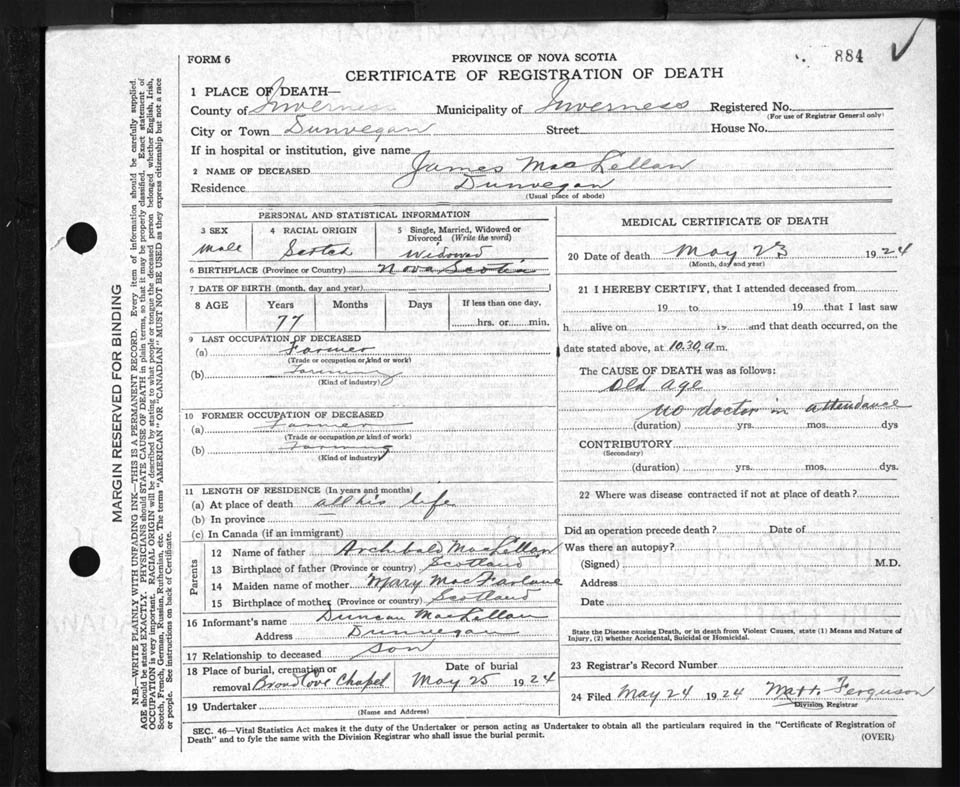 884 ✓
FORM 6
PROVINCE OF NOVA SCOTIA
CERTIFICATE OF REGISTRATION OF DEATH
1 PLACE OF DEATH—
County of Inverness Municipality of Inverness Registered No.
(For use of Registrar General only)
City or Town Dunvegan Street House No.
If in hospital or institution, give name
2 NAME OF DECEASED James MacLellan
Residence Dunvegan
(Usual place of abode)
PERSONAL AND STATISTICAL INFORMATION
3 SEX 4 RACIAL ORIGIN 5 Single, Married, Widowed or Divorced (Write the word)
Male Scotch Widowed
6 BIRTHPLACE (Province or Country) Nova Scotia
7 DATE OF BIRTH (month, day and year)
8 AGE Years Months Days If less than one day,
77 hrs. or min.
9 LAST OCCUPATION OF DECEASED
(a) Farmer
(Trade or occupation or kind of work)
(b) Farming
(Kind of industry)
10 FORMER OCCUPATION OF DECEASED
(a) Farmer
(Trade or occupation or kind of work)
(b) Farming
(Kind of industry)
11 LENGTH OF RESIDENCE (In years and months)
(a) At place of death all his life
(b) In province
(c) In Canada (if an immigrant)
Parents
12 Name of father Archibald MacLellan
13 Birthplace of father (Province or country) Scotland
14 Maiden name of mother Mary MacFarlane
15 Birthplace of mother (Province or country) Scotland
16 Informant's name Duncan MacLellan
Address Dunvegan
17 Relationship to deceased Son
18 Place of burial, cremation or Date of burial
removal Broad Cove Chapel May 25 1924
19 Undertaker
(Name and Address)
MEDICAL CERTIFICATE OF DEATH
20 Date of death May 23 1924
(Month, day and year)
21 I HEREBY CERTIFY, that I attended deceased from
19 to 19 that I last saw
h alive on 19 and that death occurred, on the
date stated above, at 10.30, a m.
The CAUSE OF DEATH was as follows:
Old age
no doctor in attendance
(duration) yrs. mos. dys
CONTRIBUTORY
(Secondary)
(duration) yrs. mos. dys.
22 Where was disease contracted if not at place of death?
Did an operation precede death? Date of
Was there an autopsy?
(Signed) M.D.
Address
Date
State the Disease causing Death, or in death from Violent Causes, state (1) Means and Nature of
Injury, (2) whether Accidental, Suicidal or Homicidal.
23 Registrar's Record Number
24 Filed May 24 1924 Matt. Ferguson
Division Registrar
SEC. 46—Vital Statistics Act makes it the duty of the Undertaker or person acting as Undertaker to obtain all the particulars required in the "Certificate of Registration of
Death" and to fyle the same with the Division Registrar who shall issue the burial permit.
(OVER)
MARGIN RESERVED FOR BINDING
N.B.—WRITE PLAINLY WITH UNFADING INK—THIS IS A PERMANENT RECORD. Every item of information should be carefully supplied.
AGE should be stated EXACTLY. PHYSICIANS should STATE CAUSE OF DEATH in plain terms, so that it may be properly classified. Exact statement of
OCCUPATION is very important. RACIAL ORIGIN will be described by stating to what people or tongue the deceased person belonged whether English, Irish,
Scotch, French, German, Russian, Ruthenian, etc. The terms "AMERICAN" OR "CANADIAN" MUST NOT BE USED as they express citizenship but not a race
or people. See instructions on back of Certificate.